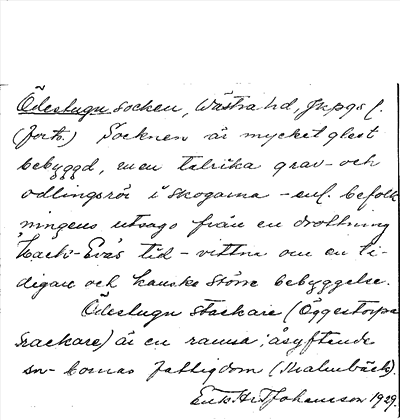 Ödestugu socken, Västra hd, Jkpgs l.
(forts.) Socknen är mycket glest
bebyggd, men talrika grav- och
odlingsrör i skogarna - enl. befolk
ningens utsago från en drottning
"Hack-Evas tid - vittna om en ti-
digare och kanske större bebyggelse.
Ödestugu stackare (Öggestorps
stackare) är en ramsa, åsyftande
sn-bornas fattigdom (Malmbäck).
Johansson 1929.